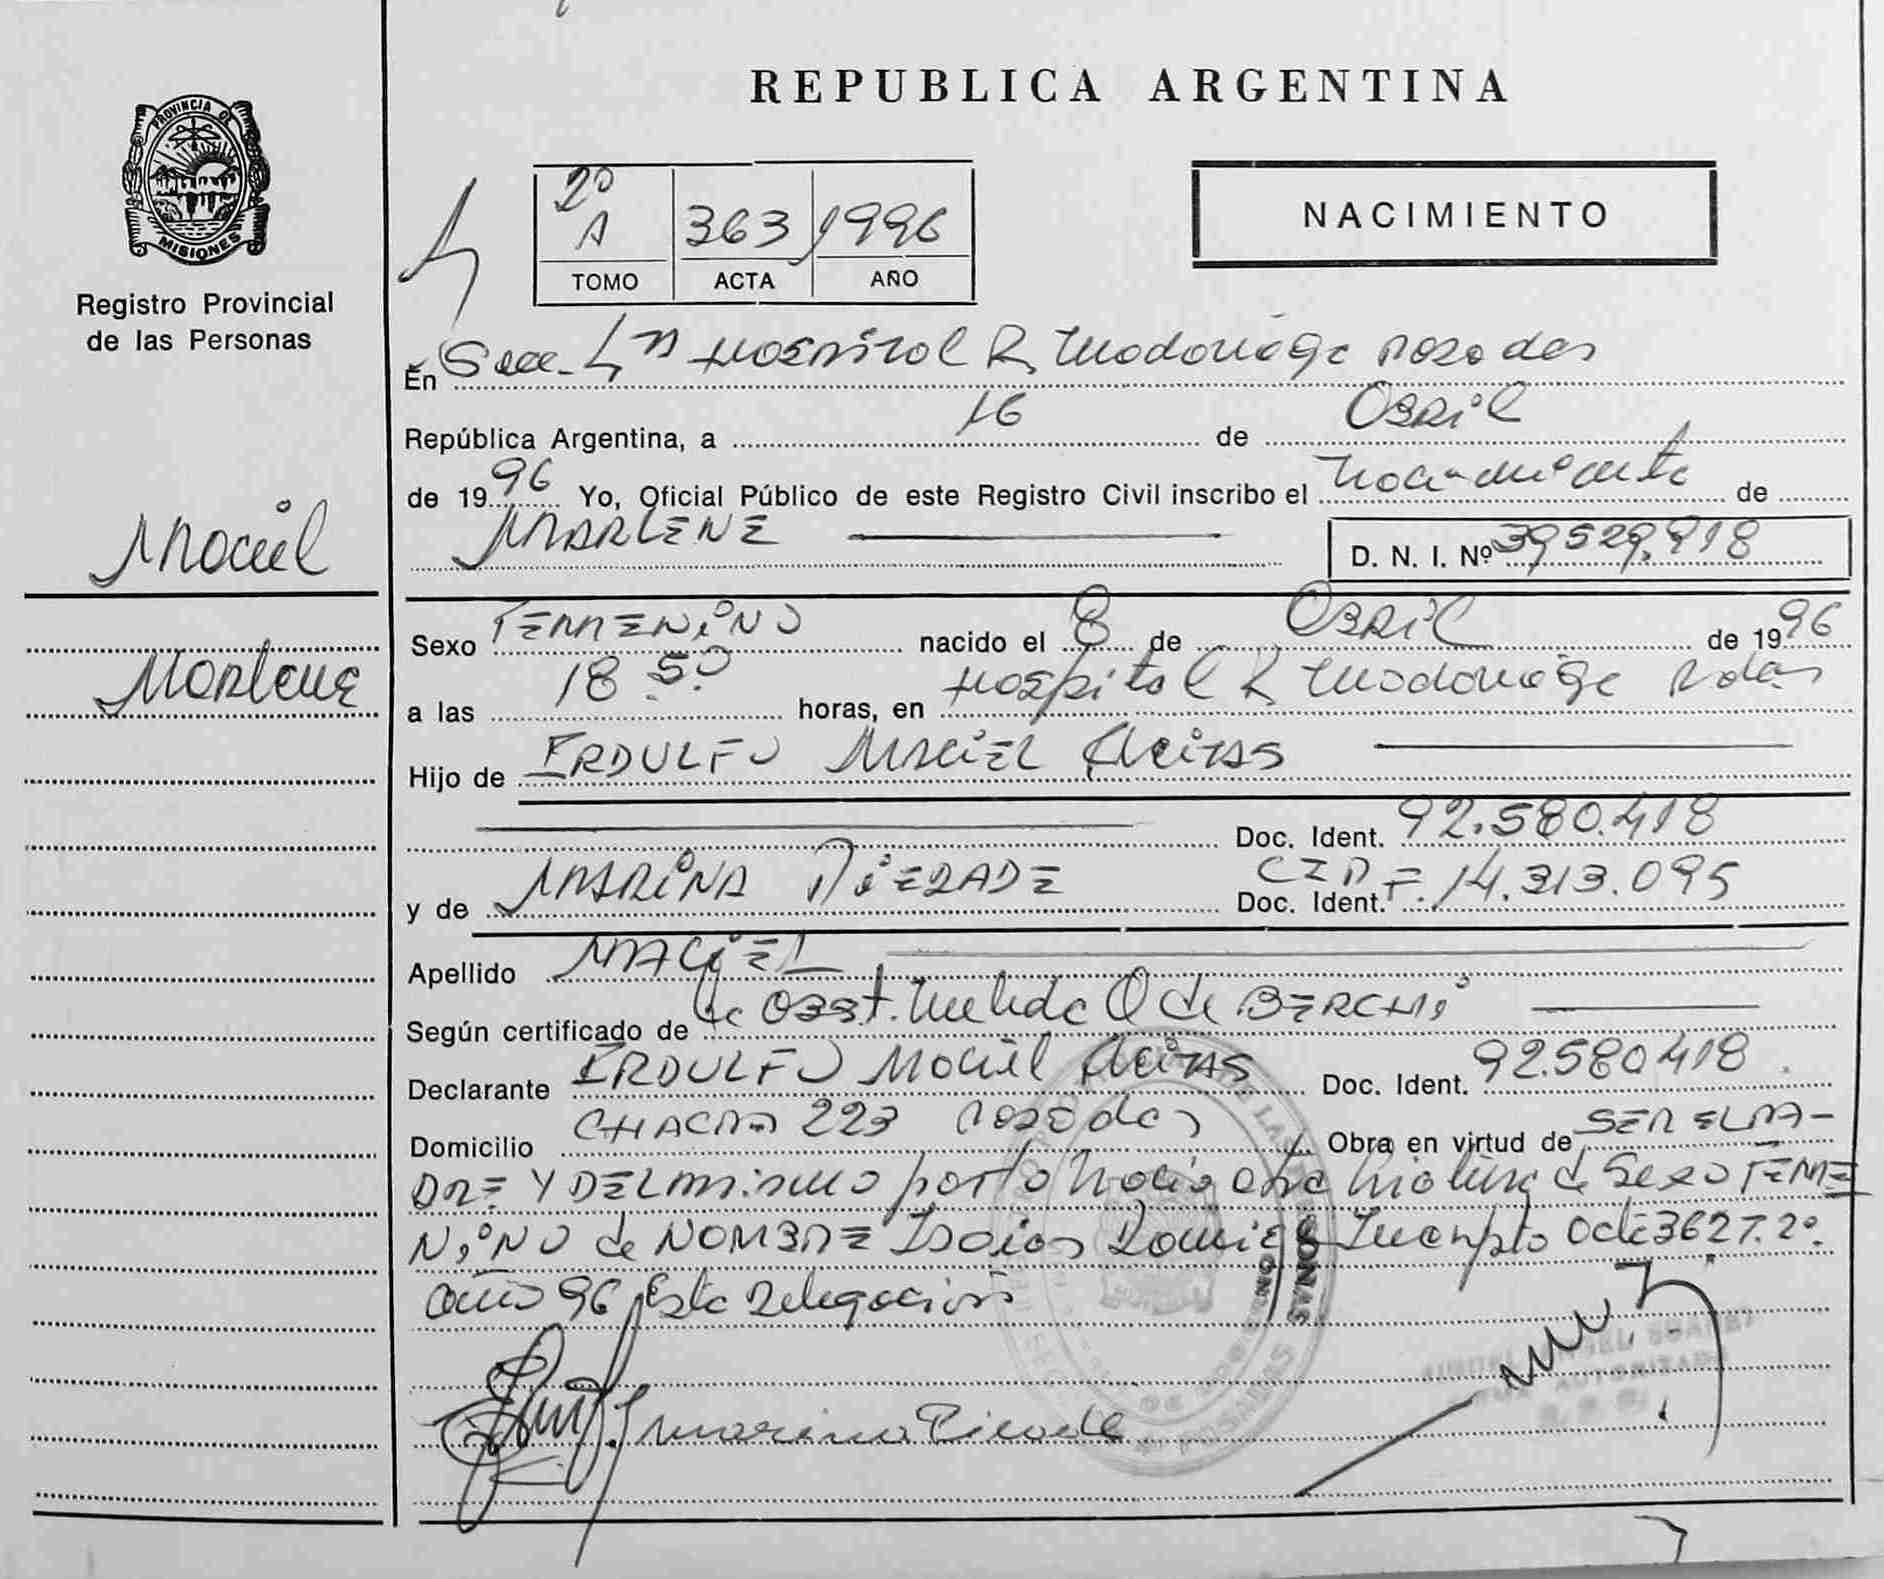 REPUBLICA ARGENTINA
PROVINCIA DE
MISIONES
Registro Provincial
de las Personas
2º
A 363 1996
TOMO ACTA AÑO
NACIMIENTO
En Secc. 4ta Hospital R Madariaga Posadas
República Argentina, a 16 de Abril
de 1996 Yo, Oficial Público de este Registro Civil inscribo el nacimiento de
MARLENE D. N. I. Nº 39.529.918
Maciel
Marlene
Sexo FEMENINO nacido el 8 de Abril de 1996
a las 18.50 horas, en Hospital R Madariaga Pdas
Hijo de ERDULFO MACIEL
Doc. Ident. 92.580.418
y de MARINA PIEDADE Doc. Ident. 14.313.095
Apellido MACIEL
Según certificado de la Obst. Melida O de
Declarante ERDULFO Maciel Doc. Ident. 92.580418
Domicilio CHACRA 223 Posadas Obra en virtud de SER EL PA-
DRE Y DEL mismo parto nació otra de Sexo FEME
NINO de NOMBRE Inscripto Acta 362 T. 2º
año 96 Esta Delegación
Marina Piedade
POSADAS